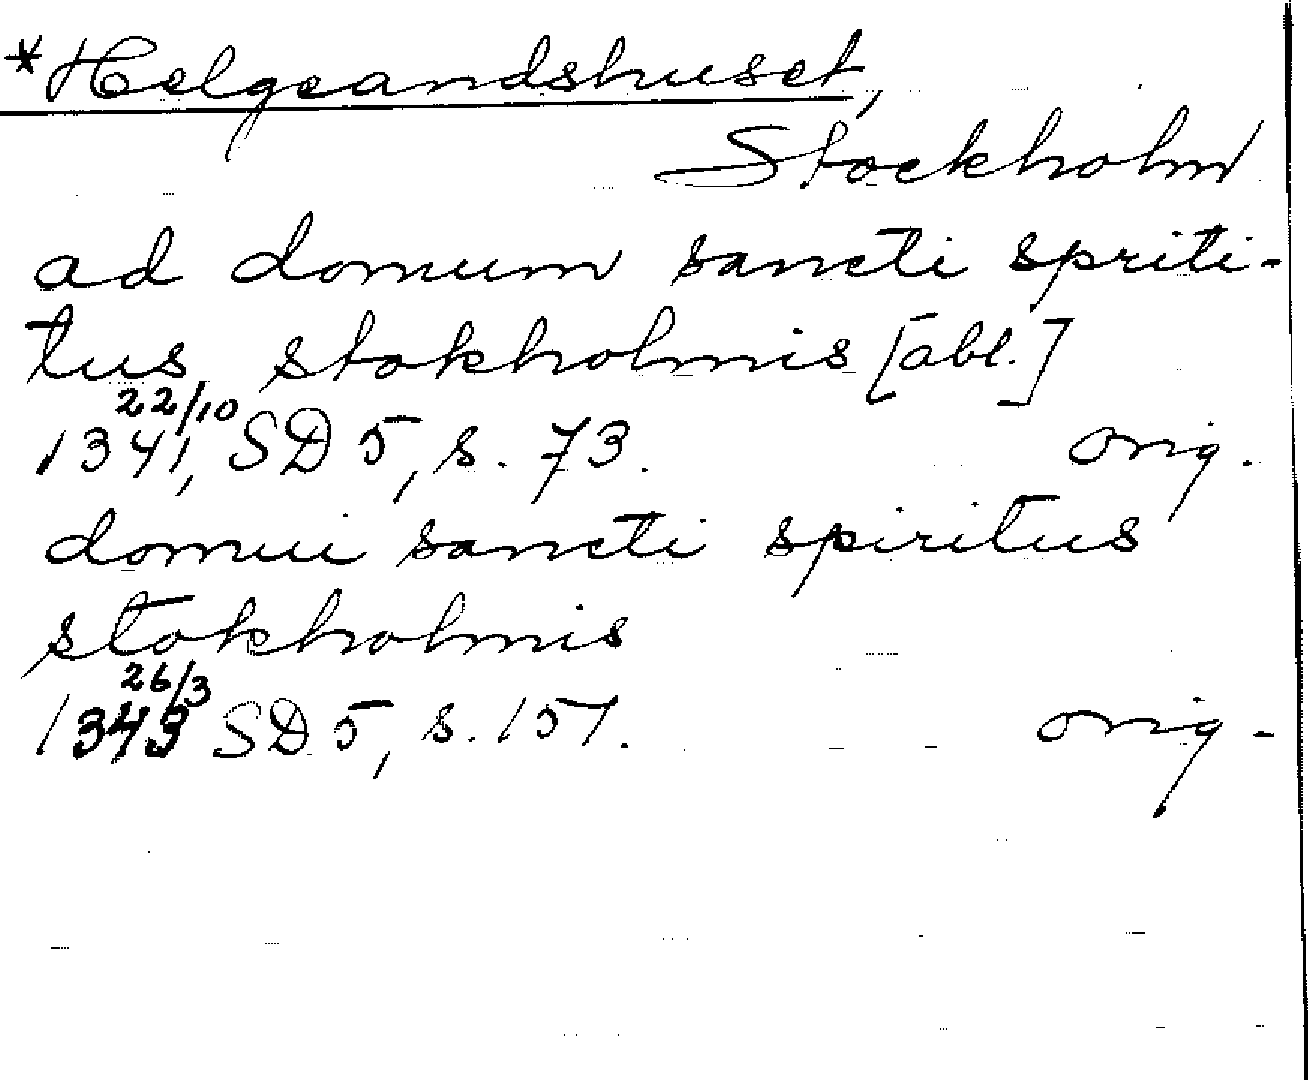 *Helgeandshuset,
Stockholm
ad domum sancti spriti-
tus stokholmis [abl.]
22/10
1341, SD 5, s. 73. orig.
domui sancti spiritus
stokholmis
26/3
1343 SD 5, s. 157. orig.